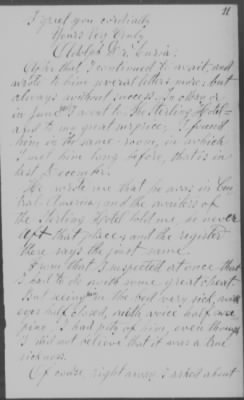 11
I greet you cordially
Yours very truly
Adolph
After that I continued to wait, and
wrote to him several letters more; but
always without success. In May or
in June I went to the Sterling Hotel
and to my great surprise, I found
him in the same room, in which
I met him long before, that is in
last December.
He wrote me that he was in Cen
tral America, and the waiters of
the Sterling Hotel told me, he never
left that place, and the register
there says the just name.
From that I suspected at once that
I had to do with some great cheat.
But seeing him in the bed very sick, with
eyes half closed, with voice half
I had pity of him, even though
I did not believe that it was a true
sickness.
Of course right away I asked about